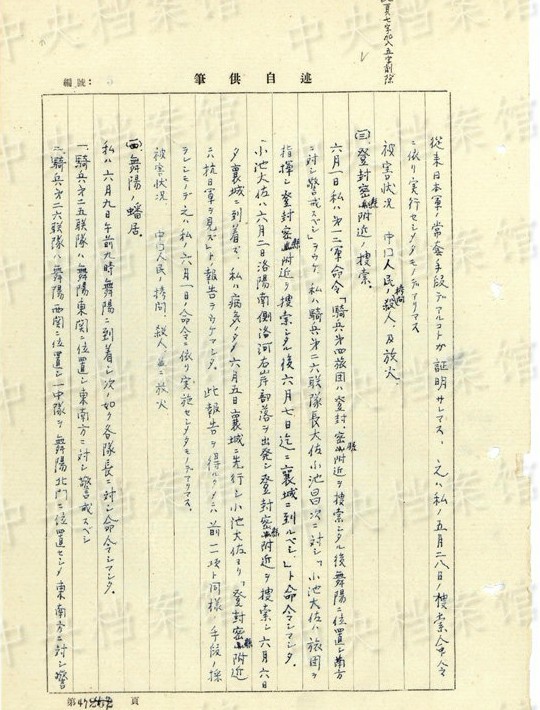 此頁七字加入五字削除
編號:
筆供自述
從来日本軍ノ常套手段デアルコトガ証明サレマス、之ハ私ノ五月二八日ノ捜索命令
ニ依リ実行セシメタモノデアリマス
被害状況 中国人民ノ拷問殺人、及放火、
(三)、登封密縣附近ノ捜索、
六月一日私ハ第一二軍命令「騎兵第四旅団ハ登封、密縣附近ヲ捜索シタル後舞陽ニ位置シ南方
ニ対シ警戒スベシ」ヲウケ、私ハ騎兵第二六联隊長大佐小池昌次ニ対シ「小池大佐ハ旅団ヲ
指揮シ登封密縣附近ヲ捜索シタル後六月七日迄ニ襄城ニ到ルベシ」ト命令シマシタ。
小池大佐ハ六月二日洛陽南側洛河右岸部落ヲ出発シ登封密縣附近ヲ捜索シ六月六日
夕襄城ニ到着ス、私ハ病気ノタメ六月五日襄城ニ先行シ小池大佐ヨリ「登封密縣附近
ニ抗日軍ヲ見ズ」ト報告ヲウケマシタ。此報告ヲ得ルタメニハ前一項ト同様ノ手段ノ採
ラレシモノデ之ハ私ノ六月一日ノ命令ニ依リ実施セシメタモノデアリマス。
被害状況 中国人民ノ拷問、殺人並ニ放火
(四)、舞陽ノ蟠居。
私ハ六月九日午前九時舞陽ニ到着シ次ノ如ク各隊長ニ対シ命令シマシタ。
一、騎兵第二五联隊ハ舞陽東関ニ位置シ東南方ニ対シ警戒スベシ
二、騎兵第二六联隊ハ舞陽西関ニ位置シ一中隊ヲ舞陽北門ニ位置セシメ東南方ニ対シ警
第 頁